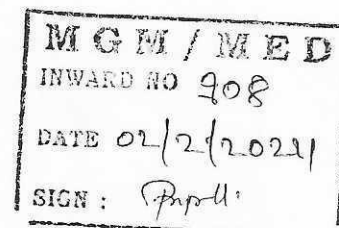 MGM/MED
INWARD NO 908
DATE 02/2/2021
SIGN :